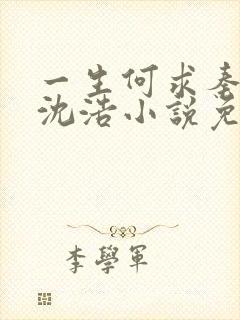 一生何求秦
沈浩小說免
李學軍